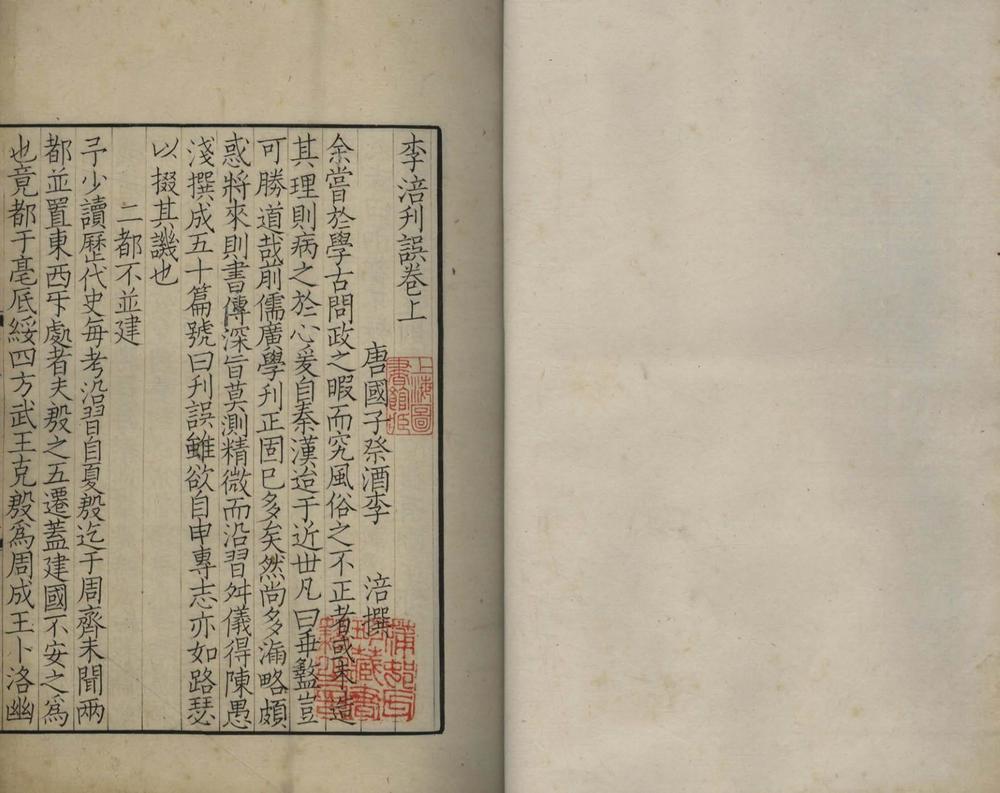 李涪刋誤卷上
唐國子祭酒李 涪撰
余嘗於學古問政之暇而究風俗之不正者或未造
其理則病之於心爰自秦漢迨于近世凡曰乖盭豈
可勝道㢤前儒廣學刋正固已多矣然尚多漏略頗
惑將來則書傳深旨莫測精微而沿習舛儀得陳愚
淺撰成五十篇號曰刋誤雖欲自申專志亦如路瑟
以掇其譏也
二都不並建
予少讀歷代史每考沿習自夏殷迄于周齊未聞兩
都並置東西㸦處者夫殷之五遷蓋建國不安之爲
也竟都于亳厎綏四方武王克殷爲周成王卜洛幽
上海圖
書館臧